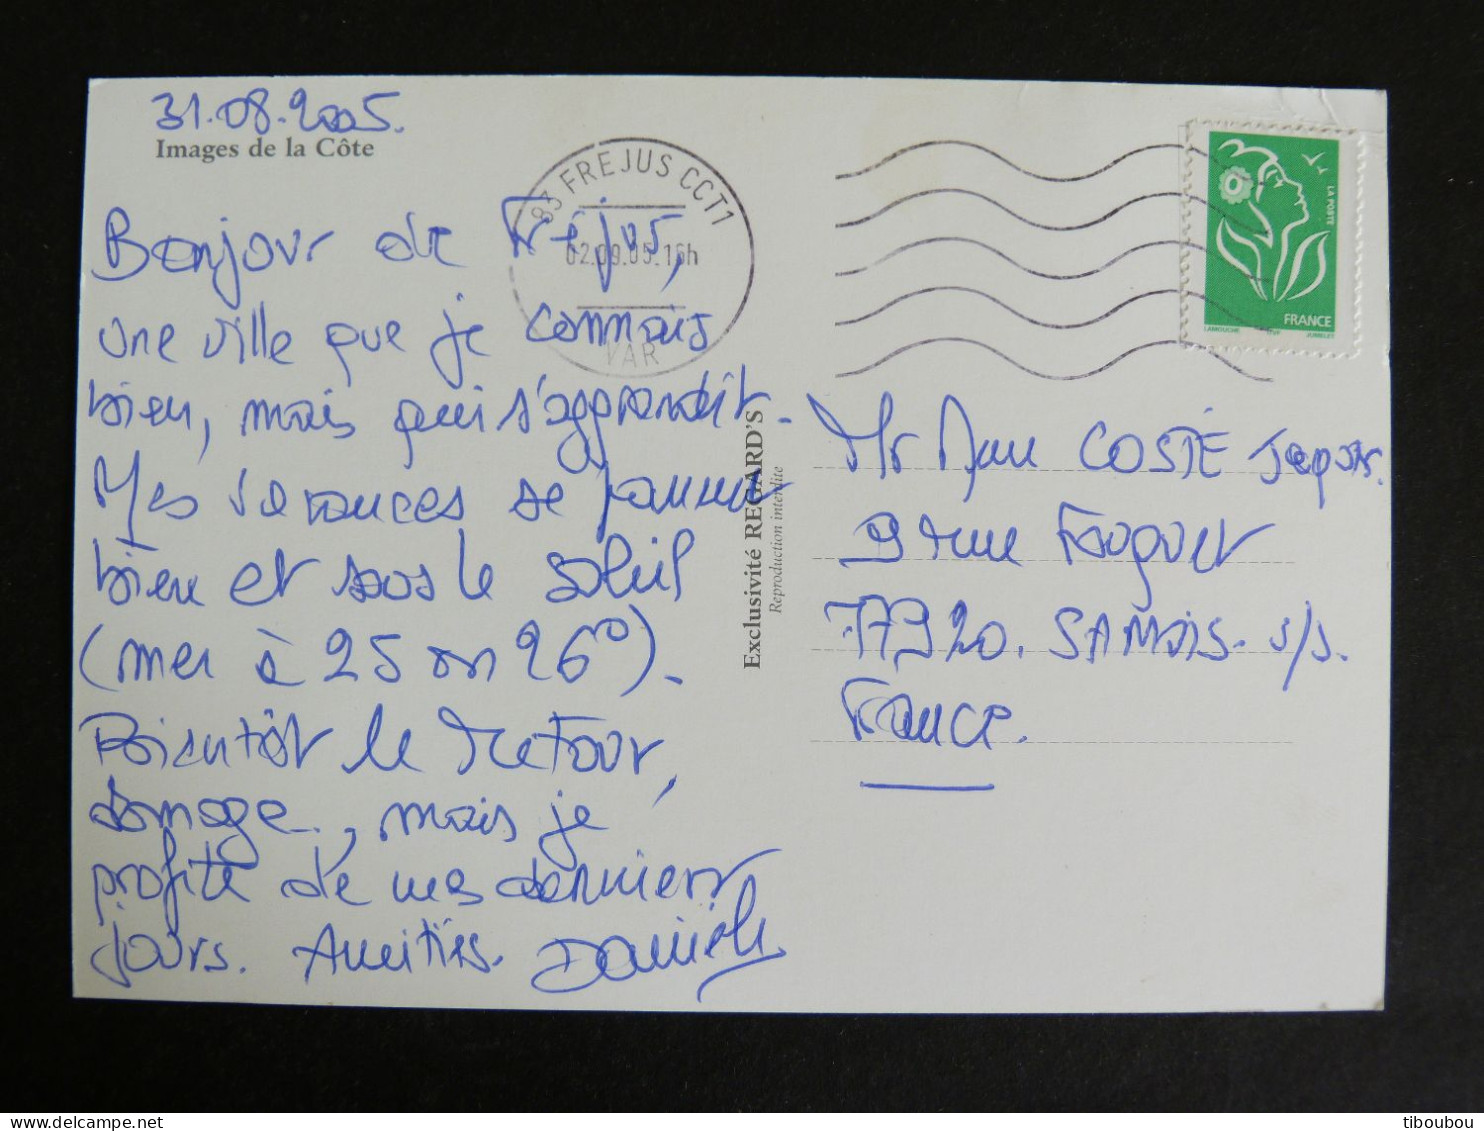 31.08.2005.
Images de la Côte
Bonjour de Fréjus,
une ville que je connais
bien, mais qui s'agrandit.
Mes vacances se passent
bien et sous le soleil
(mer à 25 ou 26°).
Bientôt le retour,
domage, mais je
profite de mes derniers
jours. Amitiés. Danièle
Exclusivité REGARD'S
Reproduction interdite
83 FREJUS CCT1
02.09.05.16h
VAR
LA POSTE
FRANCE
LAMOUCHE
JUMELET
Mr COSTE Jacques.
9 rue Fouquet
77920. SAMOIS. s/s.
France.
tiboubou